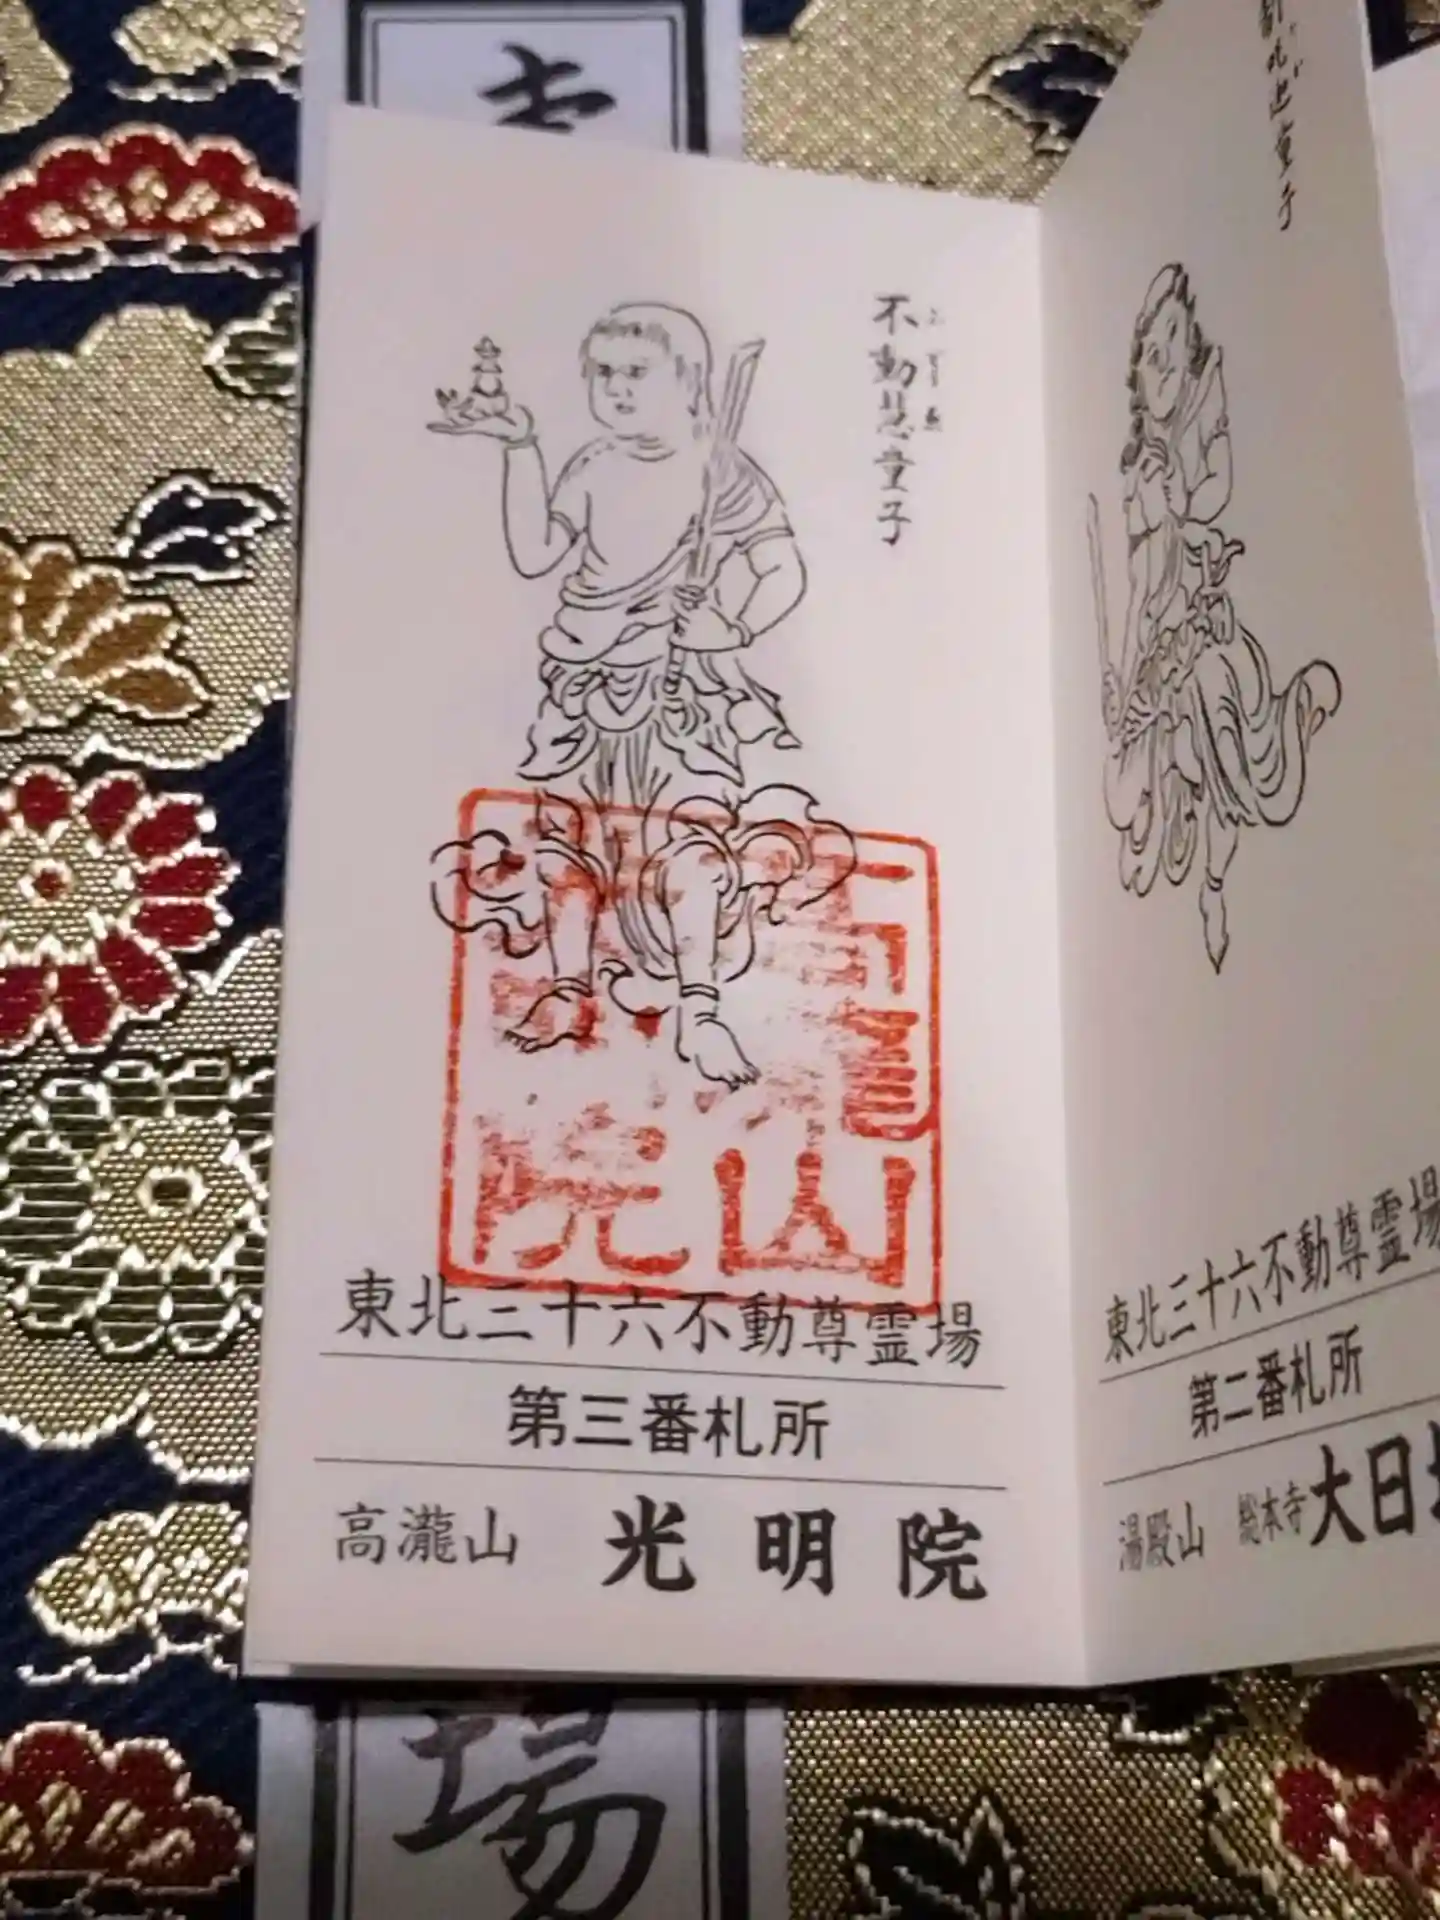 不動慧童子
東北三十六不動尊霊場
第三番札所
高瀧山 光明院
山
院
制吒迦童子
東北三十六不動尊霊場
第二番札所
湯殿山 総本寺 大日
場